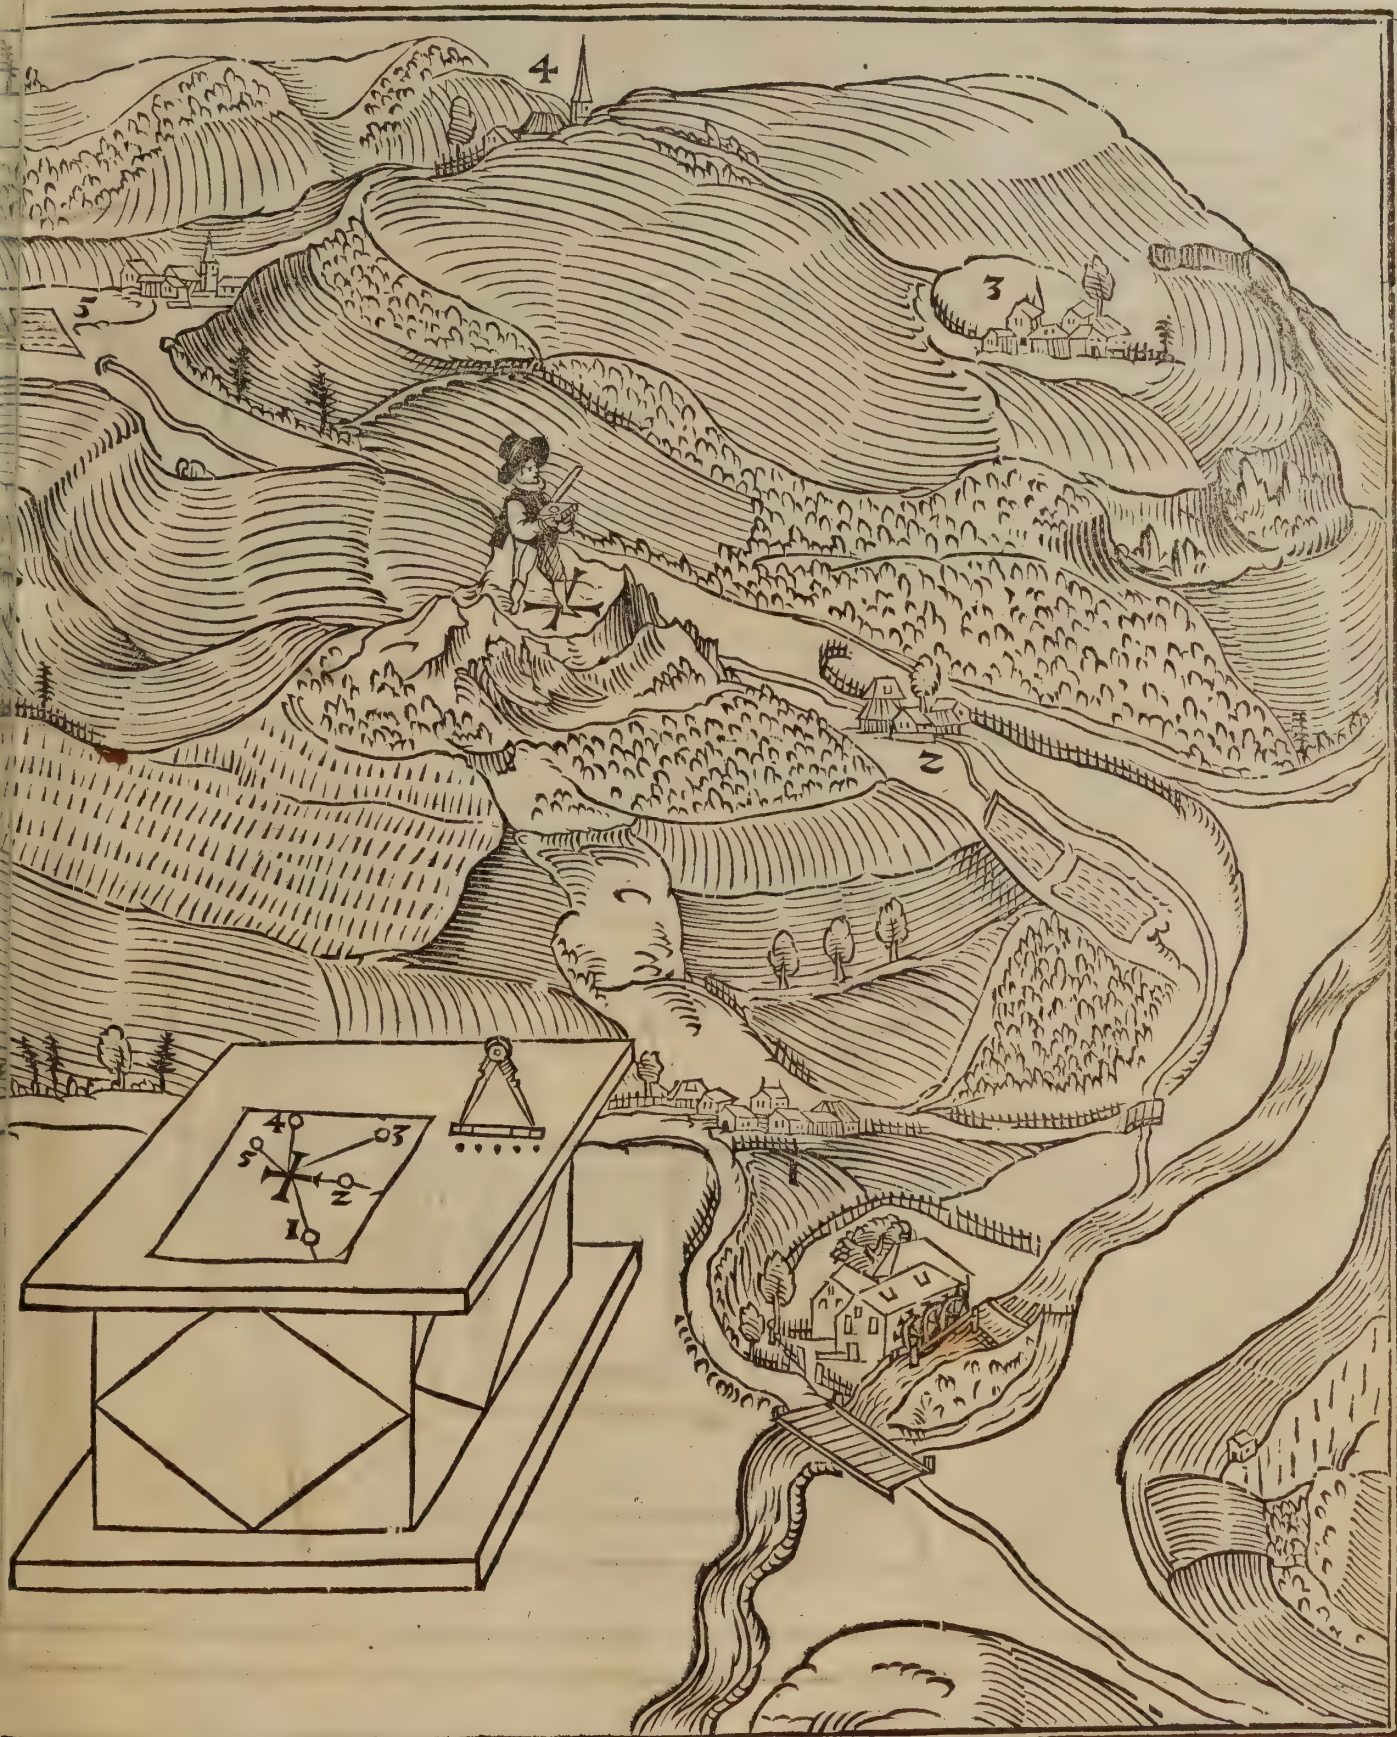 4
3
5
2
1
4
3
5
2
1